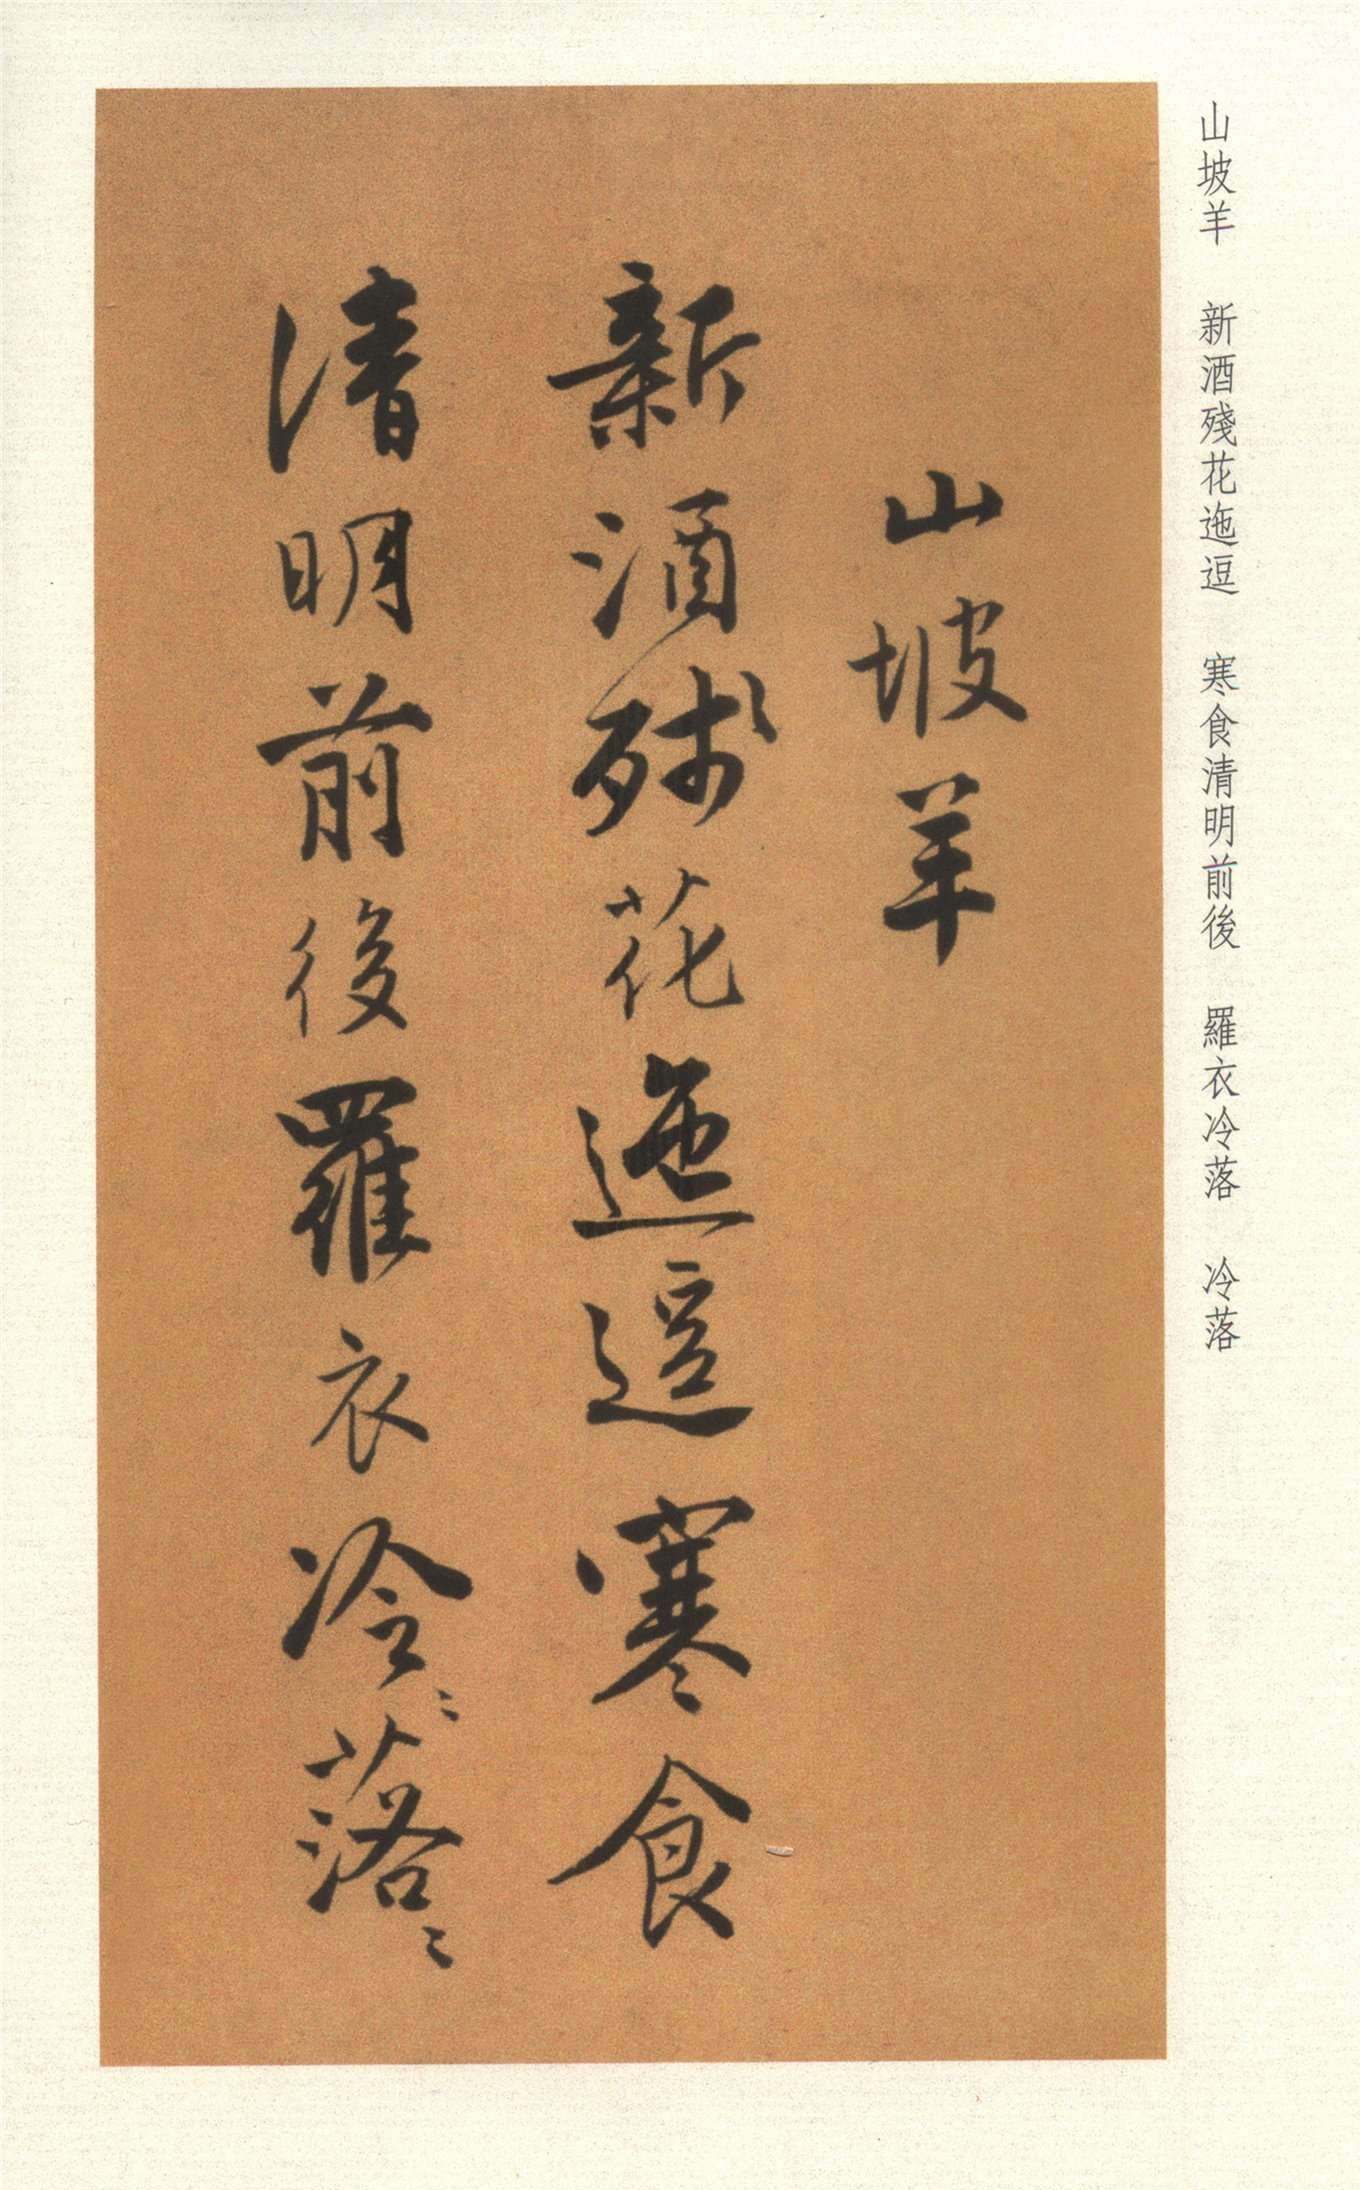 山坡羊　新酒殘花迤逗　寒食清明前後　羅衣冷落　冷落
山坡羊
新酒殘花迤逗寒食
清明前後羅衣冷〻落〻